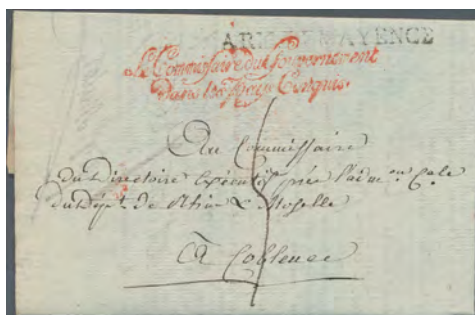 ARM. DE MAYENCE
Le Commissaire du Gouvernement
Dans les Pays Conquis.
Au Commissaire
du Directoire Exécutif près l'adm.on C.ale
du Dép.t de Rhin & Moselle
à Coblence